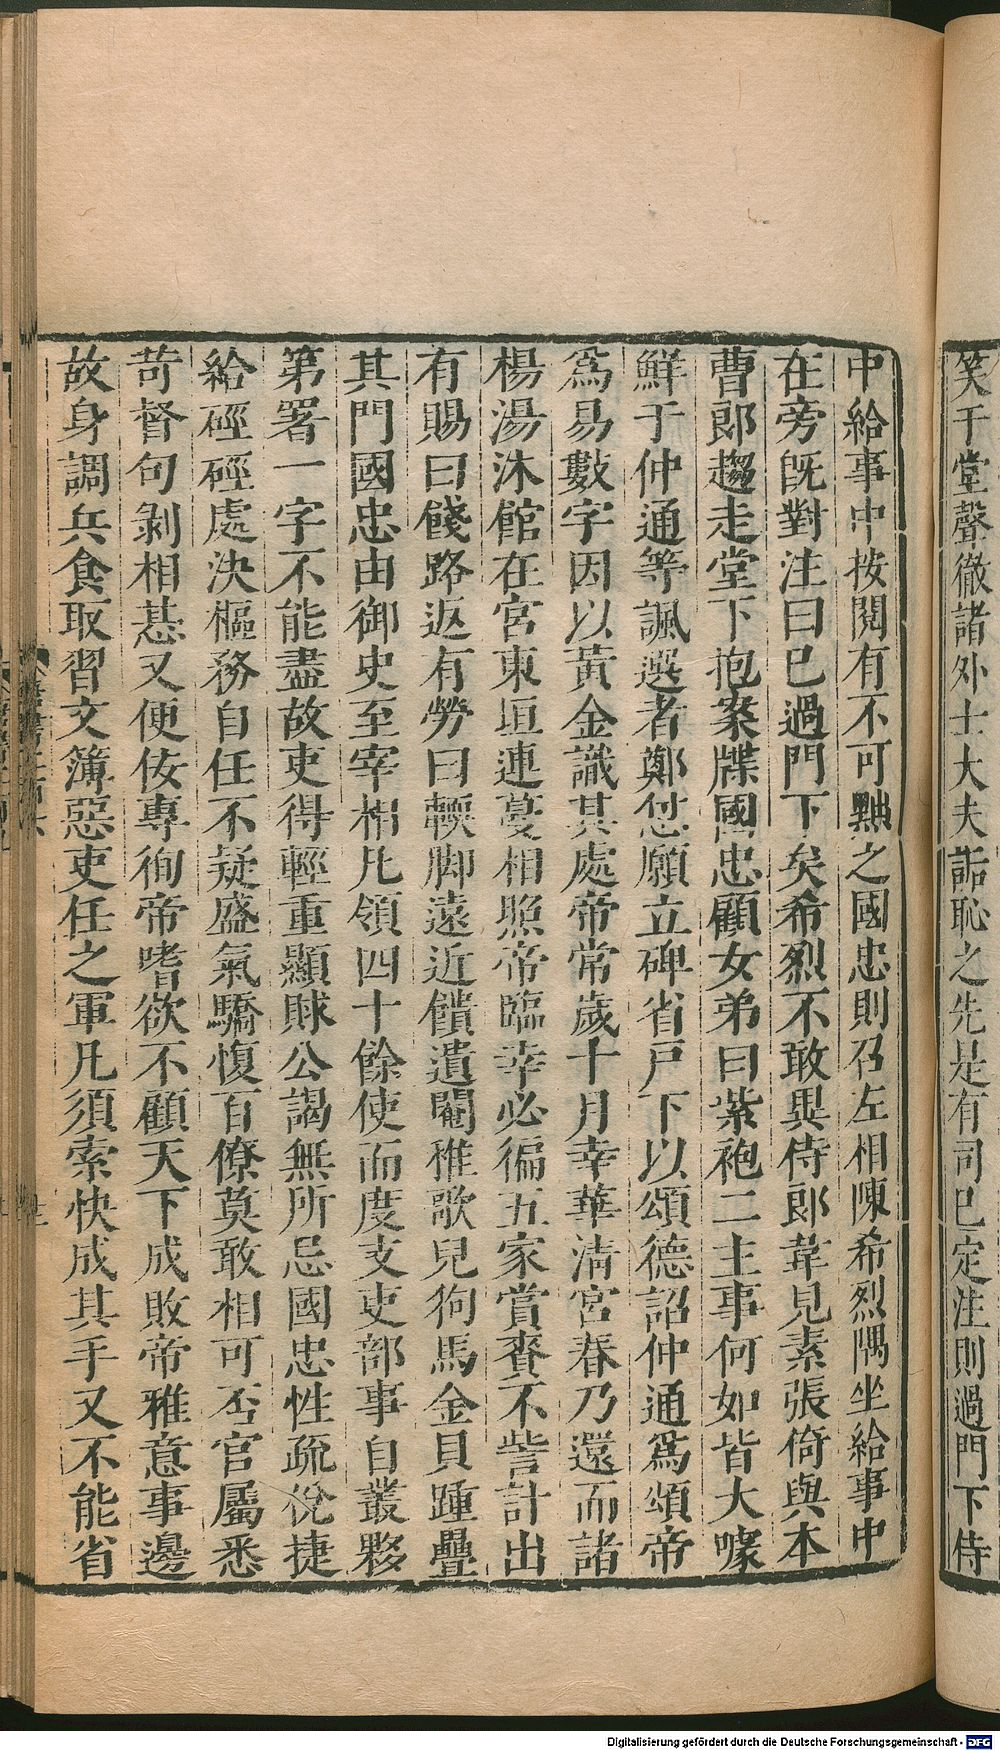 笑于堂聲徹諸外士大夫詬恥之先是有司已定注則過門下侍
中給事中按閱有不可黜之國忠則召左相陳希烈隅坐給事中
在旁旣對注曰已過門下矣希烈不敢異侍郎韋見素張倚與本
曹郎趨走堂下抱案牒國忠顧女弟曰紫袍二主事何如皆大噱
鮮于仲通等諷選者鄭怤願立碑省戶下以頌德詔仲通爲頌帝
爲易數字因以黃金識其處帝常歲十月幸華淸宮春乃還而諸
楊湯沐館在宮東垣連蔓相照帝臨幸必徧五家賞賚不訾計出
有賜曰餞路返有勞曰輭脚遠近饋遺閹稚歌兒狗馬金貝踵疊
其門國忠由御史至宰相凡領四十餘使而度支吏部事自叢夥
第署一字不能盡故吏得輕重顯賕公謁無所忌國忠性疏侻捷
給硜硜處決樞務自任不疑盛氣驕愎百僚莫敢相可否官屬悉
苛督句剝相惎又便佞專徇帝嗜欲不顧天下成敗帝雅意事邊
故身調兵食取習文簿惡吏任之軍凡須索快成其手又不能省
Digitalisierung gefördert durch die Deutsche Forschungsgemeinschaft - DFG